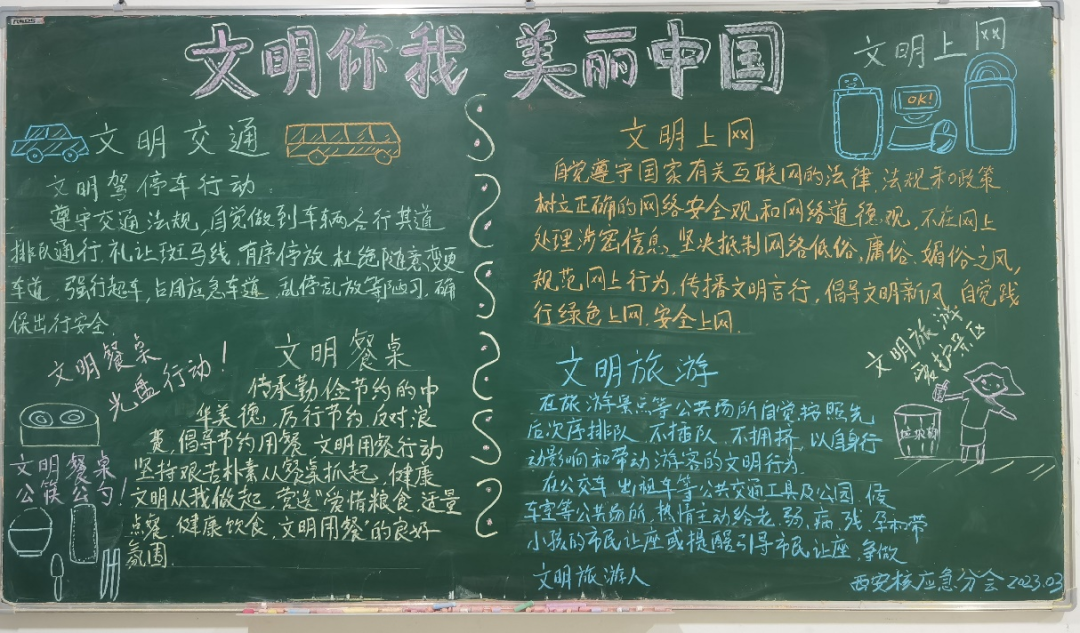 文明你我 美丽中国
文明交通
文明驾停车行动:
遵守交通法规,自觉做到车辆各行其道
排队通行.礼让斑马线.有序停放.杜绝随意变更
车道.强行超车,占用应急车道.乱停乱放等陋习.确
保出行安全.
文明餐桌
光盘行动!
文明餐桌
公筷公勺!
文明餐桌
传承勤俭节约的中
华美德,厉行节约.反对浪
费,倡导节约用餐.文明用餐行动
坚持艰苦朴素从餐桌抓起.健康
文明从我做起,营造"爱惜粮食.适量
点餐.健康饮食,文明用餐"的良好
氛围.
文明上网
OK!
文明上网
自觉遵守国家有关互联网的法律.法规和政策
树立正确的网络安全观和网络道德观,不在网上
处理涉密信息.坚决抵制网络低俗,庸俗.媚俗之风,
规范网上行为.传播文明言行,倡导文明新风.自觉践
行绿色上网.安全上网.
文明旅游
爱护景区
垃圾箱
文明旅游
在旅游景点等公共场所自觉按照先
后次序排队.不插队.不拥挤.以自身行
动影响和带动游客的文明行为.
在公交车.出租车等公共交通工具及公园.候
车室等公共场所.热情主动给老.弱.病.残.孕和带
小孩的市民让座或提醒引导市民让座.争做
文明旅游人
西安核应急分会2023.03